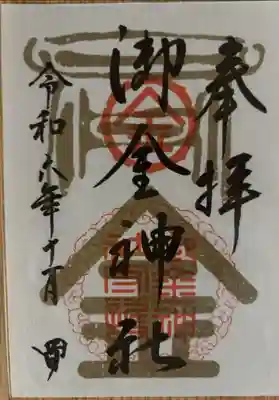 奉拝
御金神社
令和六年十月
金